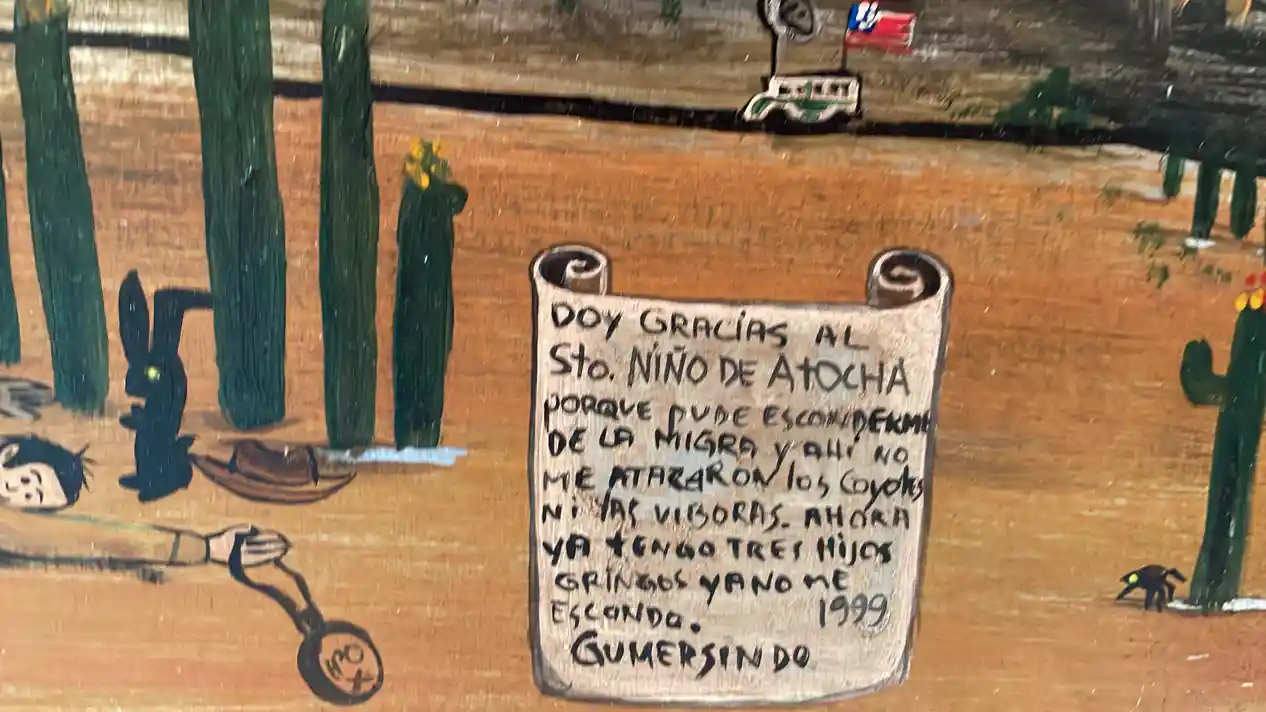 DOY GRACIAS AL
Sto. NIÑO DE AtOCHA
PORQUE PUDE ESCONDERME
DE LA MIGRA Y AHÍ NO
ME ATAZARON los Coyotes
Ni lAS VIBORAS. AHORA
YA tENGO TRES HijOS
GRINGOS YA NO ME
ESCONDO. 1999
GUMERSINDO